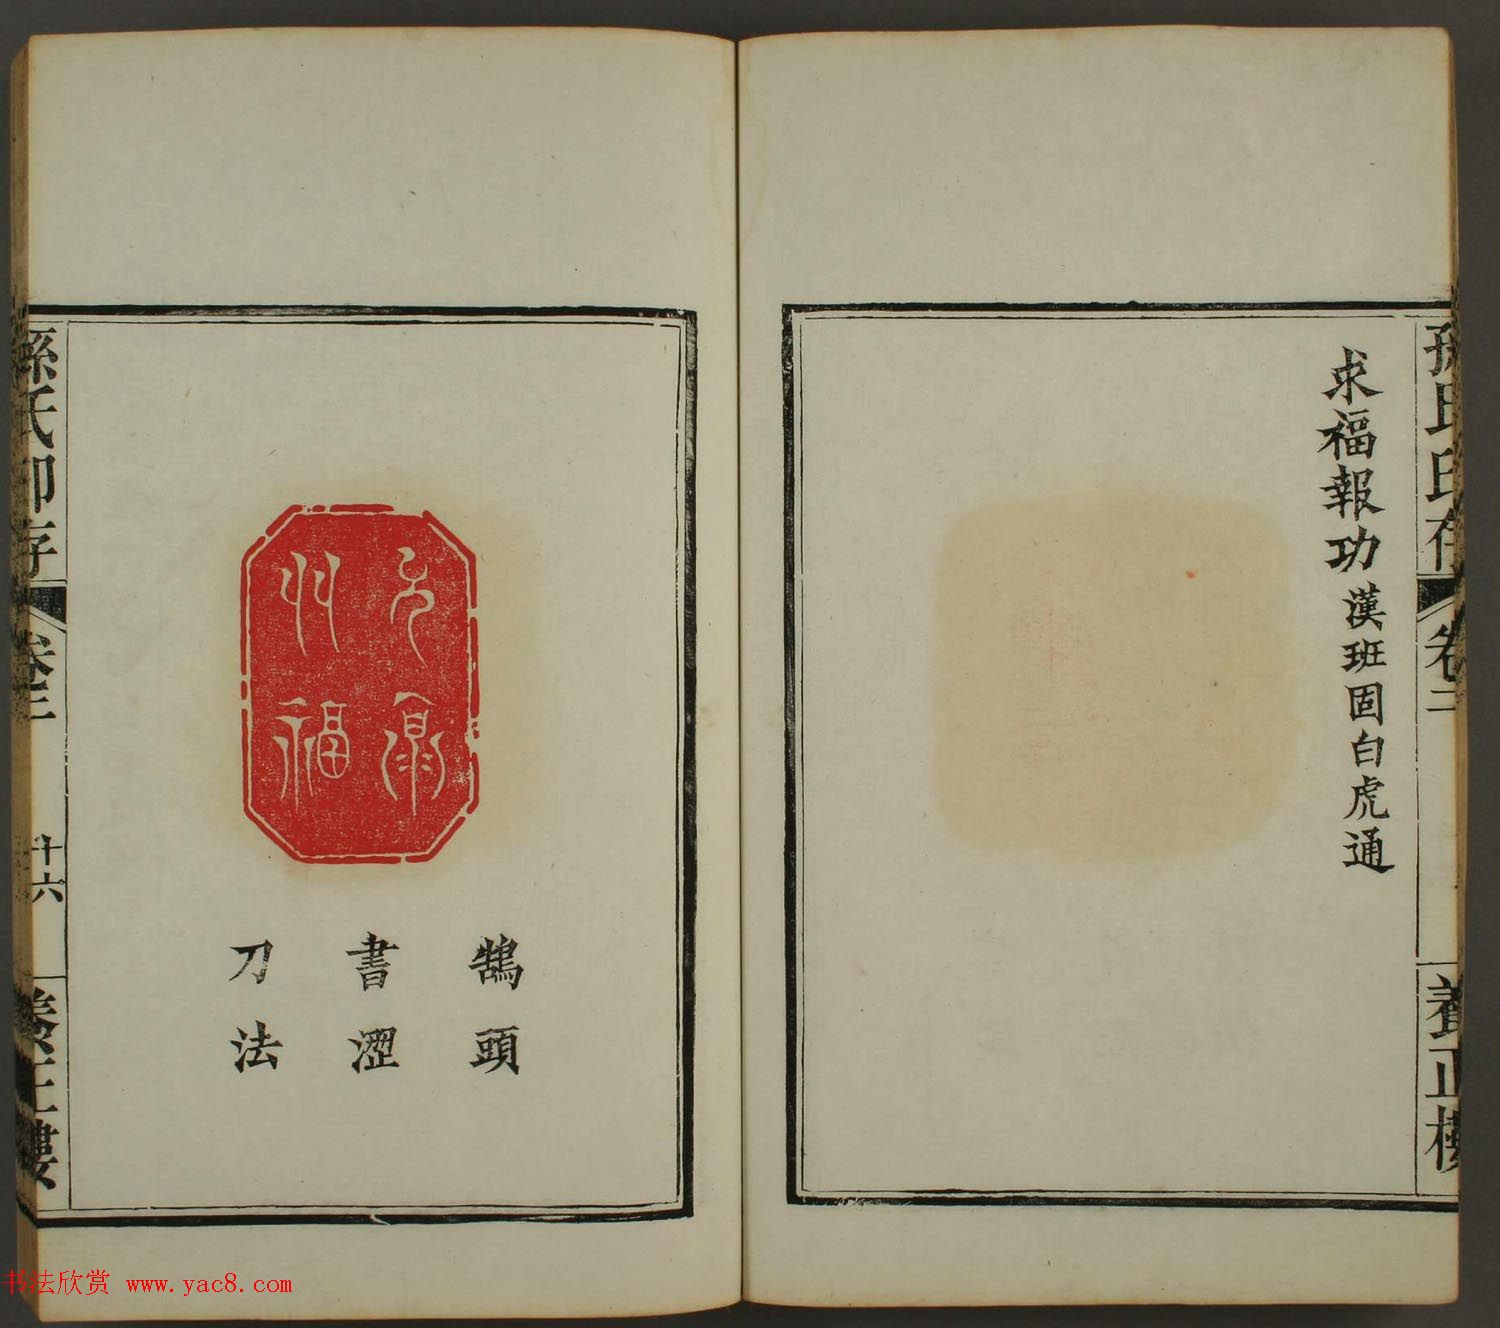 孫氏印存 卷二 養正樓
求福報功 漢班固白虎通
福
鵠頭
書澀
刀法
孫氏印存 卷二 十六 養正樓
书法欣赏 www.yac8.com